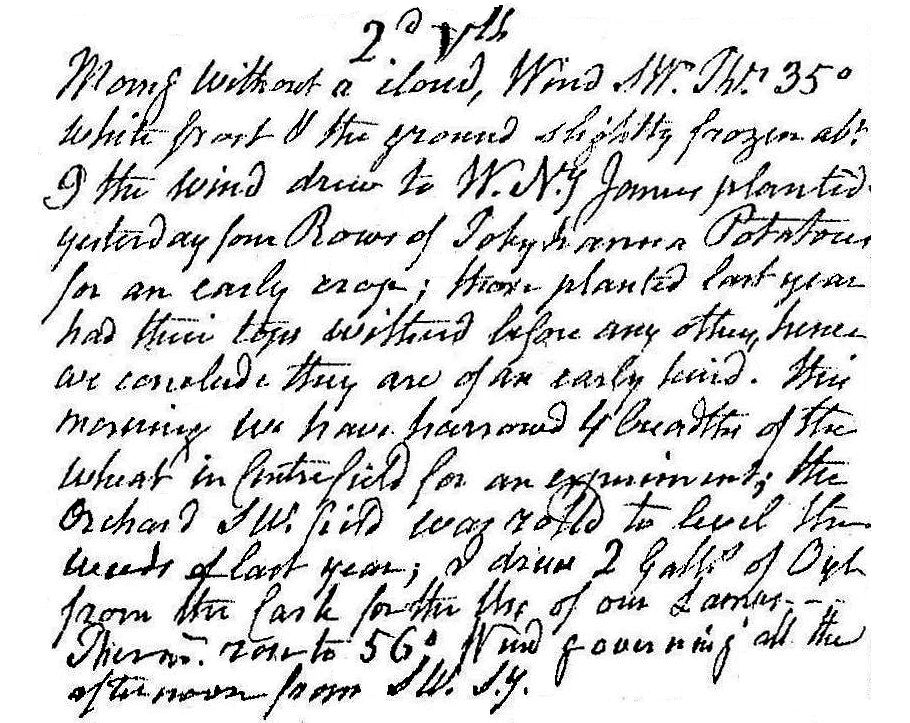 2d Vth
Morng without a cloud, Wind SW. Thr. 35°
white frost & the ground slightly frozen abt
9 the wind drew to W.N.y James planted
yesterday four Rows of Potatoes
for an early crop; those planted last year
had their tops witherd before any other, hence
we conclude they are of an early kind. this
morning we have harrowed 4 breadths of the
wheat in Centre field for an experiment; the
Orchard SW. field was rolld to level the
weeds of last year; I drew 2 Galls of Oyl
from the Cask for the Use of our Lamps--
Thermr. rose to 56° Wind governing all the
afternoon from SW. S.y.